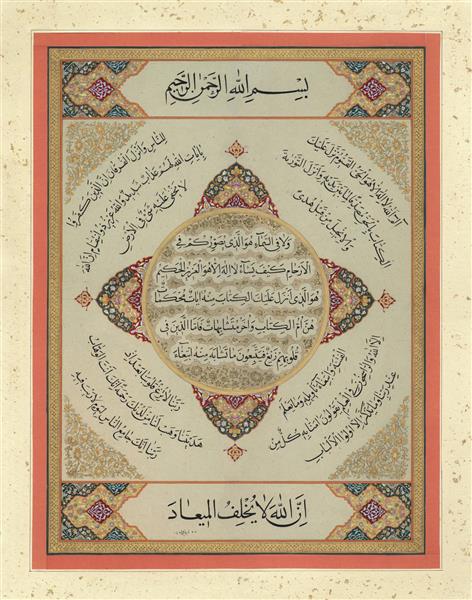 بِسْمِ اللهِ الرَّحْمٰنِ الرَّحِيمِ
الم الله لا اله الا هو الحي القيوم نزل عليك
الكتاب بالحق مصدقا لما بين يديه وانزل التورية
والانجيل من قبل هدى
للناس وانزل الفرقان ان الذين كفروا
بايات الله لهم عذاب شديد والله عزيز ذوانتقام ان الله
لا يخفى عليه شئ في الارض
ولا في السماء هو الذي يصوركم في
الارحام كيف يشاء لا اله الا هو العزيز الحكيم
هو الذي انزل عليك الكتاب منه ايات محكمات
هن ام الكتاب واخر متشابهات فاما الذين في
قلوبهم زيغ فيتبعون ما تشابه منه ابتغاء
الفتنة وابتغاء تاويله وما يعلم تاويله
الا الله والراسخون في العلم يقولون امنا به كل من
عند ربنا وما يذكر الا اولوا الالباب
ربنا لا تزغ قلوبنا بعد اذ
هديتنا وهب لنا من لدنك رحمة انك انت الوهاب
ربنا انك جامع الناس ليوم لا ريب فيه
اِنَّ اللهَ لا يُخْلِفُ الميعادَ